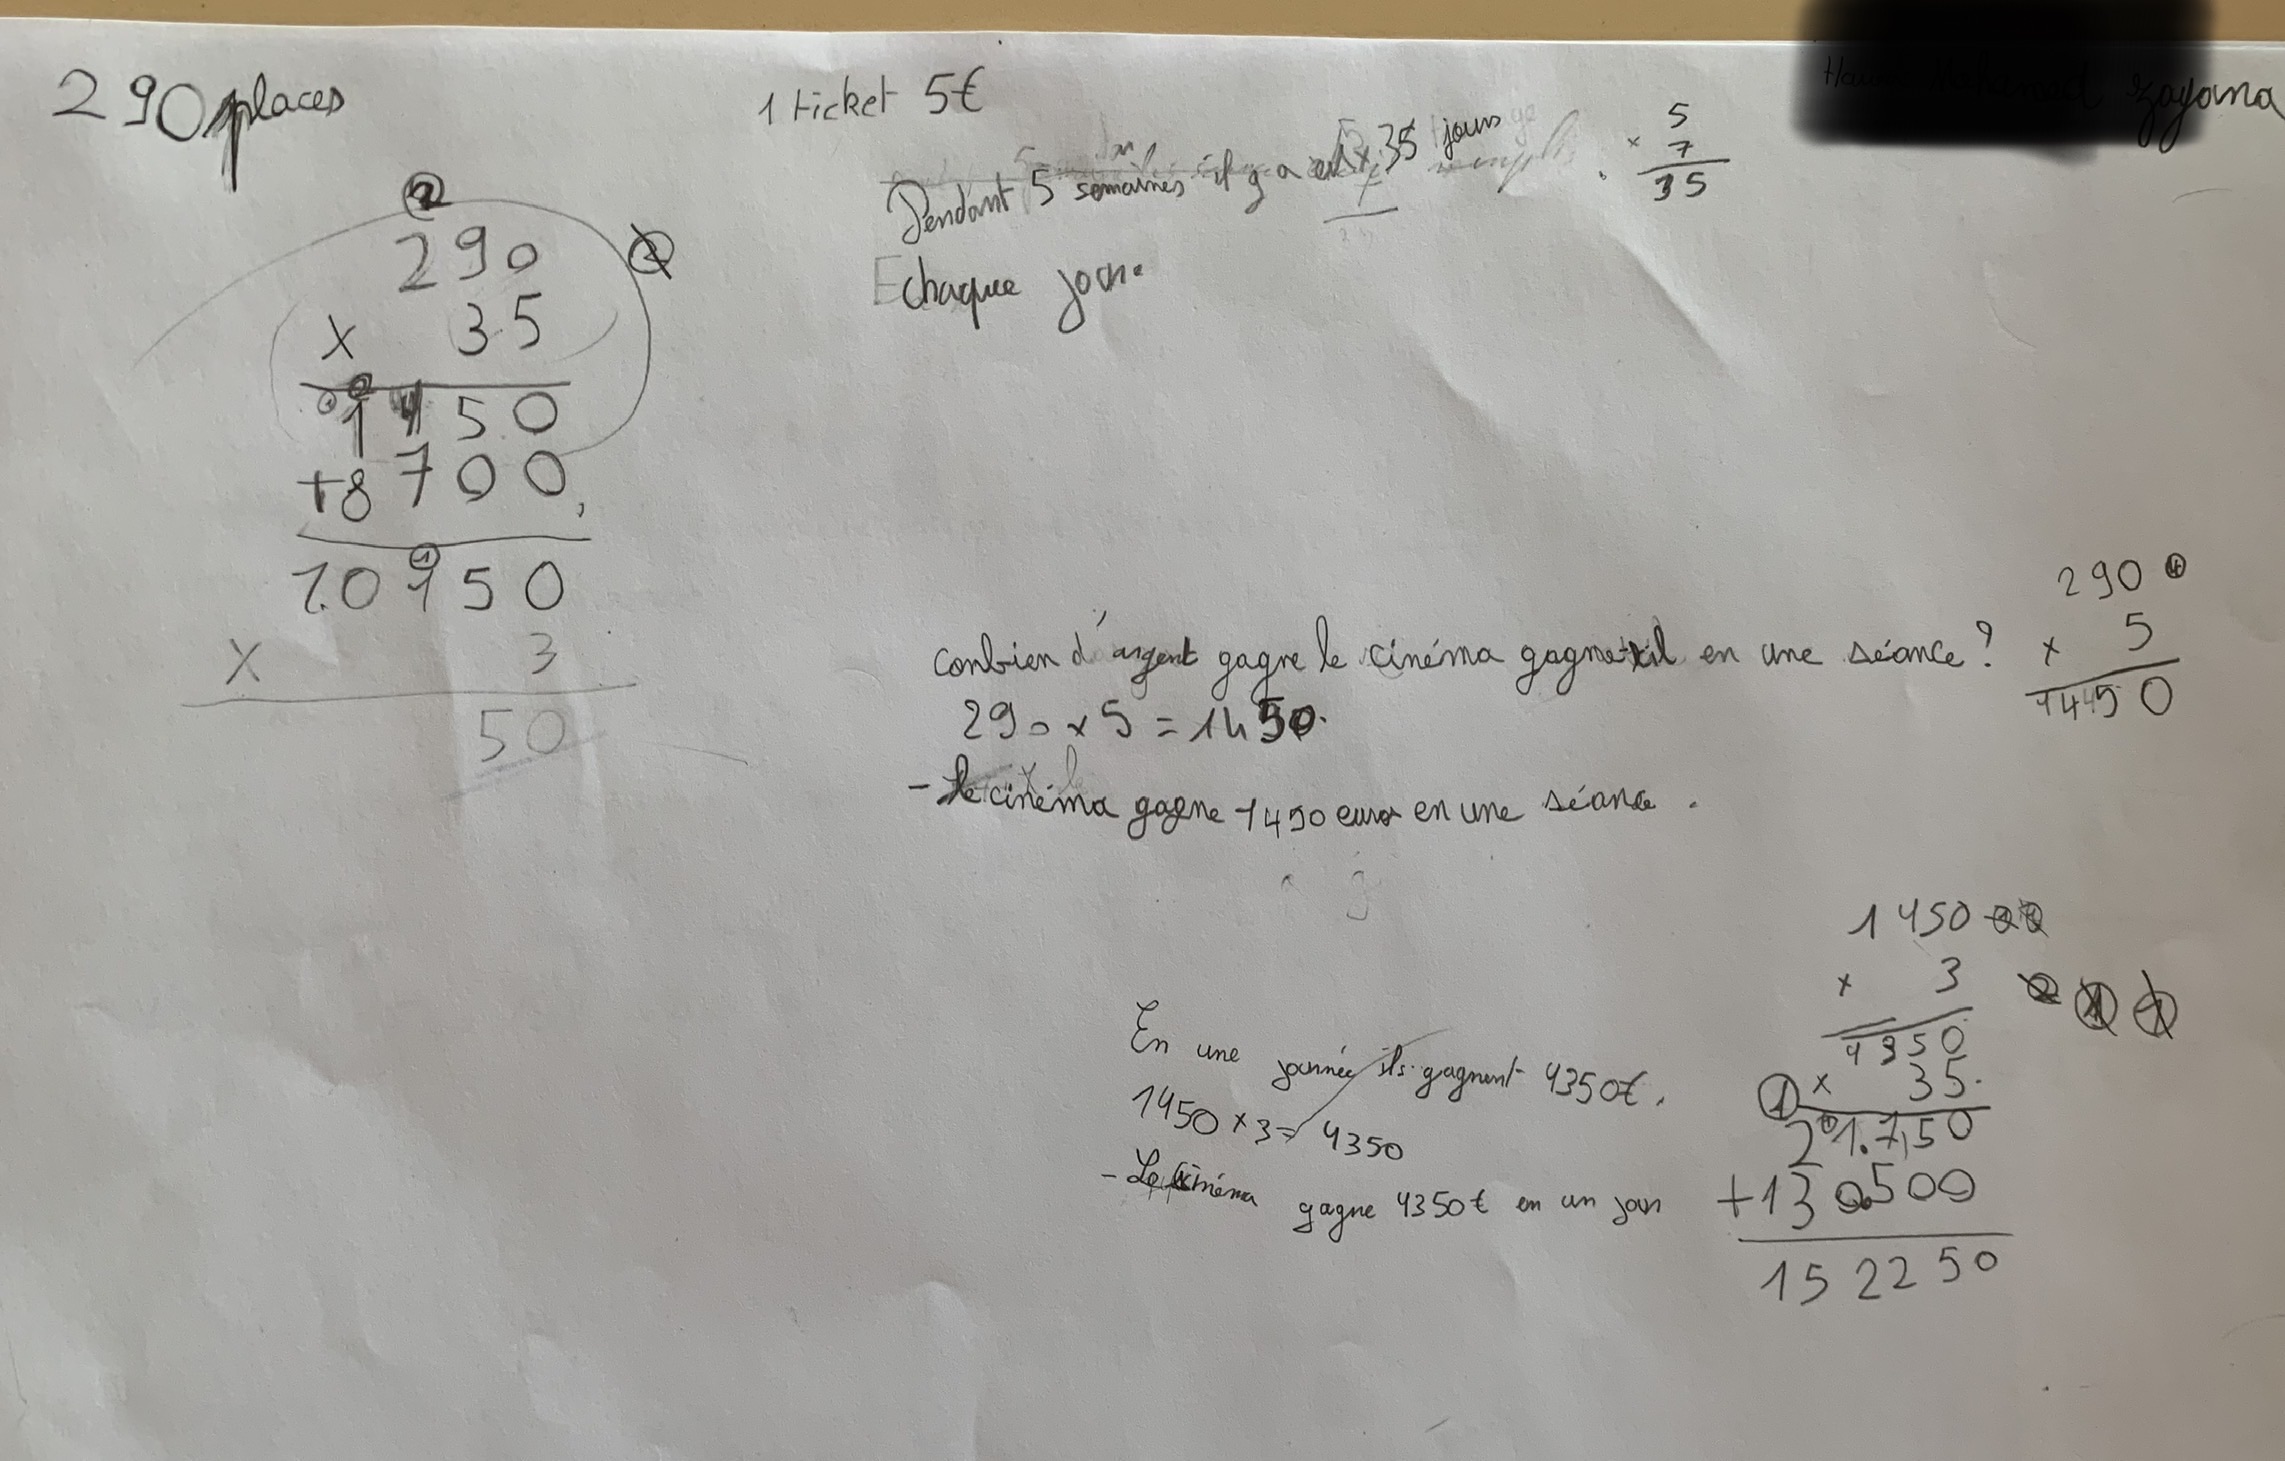 290 places
1 ticket 5€
zayana
Pendant 5 semaines il y a eu 35 jours
5
× 7
35
chaque jour.
290
× 35
1450
+8700
10150
× 3
50
conbien d'argent gagne le cinéma gagne-t-il en une séance?
290 × 5 = 1450.
- Le cinéma gagne 1450 euros en une séance.
290
× 5
1450
3
1450
× 3
4350
× 35
21.750
+130500
152250
En une journée ils gagnent 4350€.
1450 × 3 = 4350
- Le cinéma gagne 4350€ en un jour